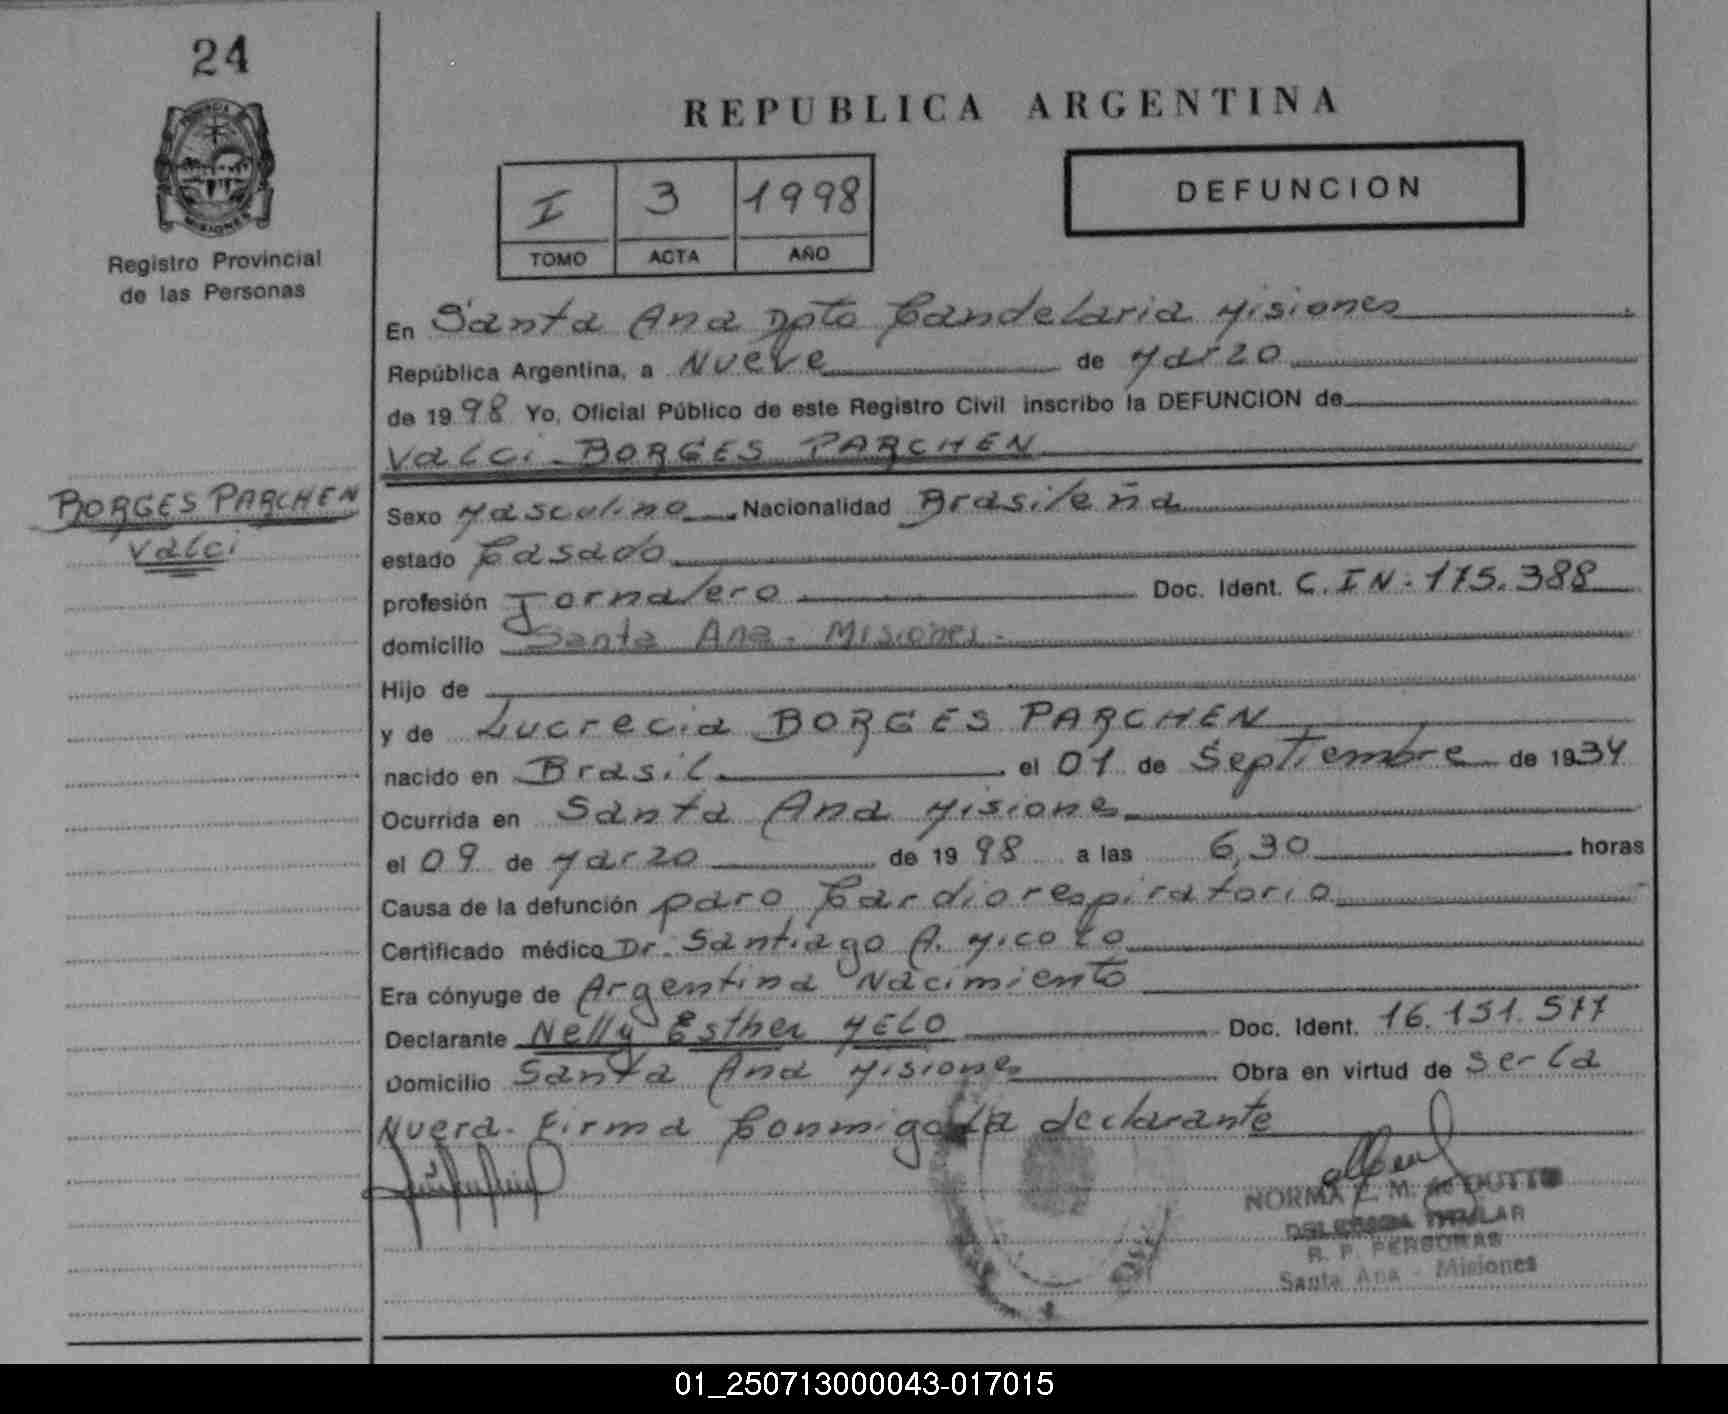 24
PROVINCIA
MISIONES
Registro Provincial
de las Personas
REPUBLICA ARGENTINA
I 3 1998
TOMO ACTA AÑO
DEFUNCION
En Santa Ana Dpto Candelaria Misiones
República Argentina, a Nueve de Marzo
de 1998 Yo, Oficial Público de este Registro Civil inscribo la DEFUNCION de
Valci BORGES PARCHEN
BORGES PARCHEN
Valci
Sexo Masculino Nacionalidad Brasileña
estado Casado
profesión Jornalero Doc. Ident. C.I N. 175.388
domicilio Santa Ana - Misiones -
Hijo de
y de Lucrecia BORGES PARCHEN
nacido en Brasil el 01 de Septiembre de 1934
Ocurrida en Santa Ana Misiones
el 09 de Marzo de 1998 a las 6,30 horas
Causa de la defunción paro Cardiorespiratorio
Certificado médico Dr. Santiago A.
Era cónyuge de Argentina Nacimiento
Declarante Nelly Esther MELO Doc. Ident. 16.151.577
Domicilio Santa Ana Misiones Obra en virtud de ser la
Nuera. Firma Conmigo La declarante
NORMA
DELEGADA TITULAR
R. P. PERSONAS
Santa Ana - Misiones
01_250713000043-017015